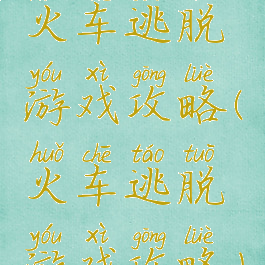 火车逃脱
yóu xì gōng lüè
游戏攻略(
huǒ chē táo tuō
火车逃脱
yóu xì gōng lüè
游戏攻略)